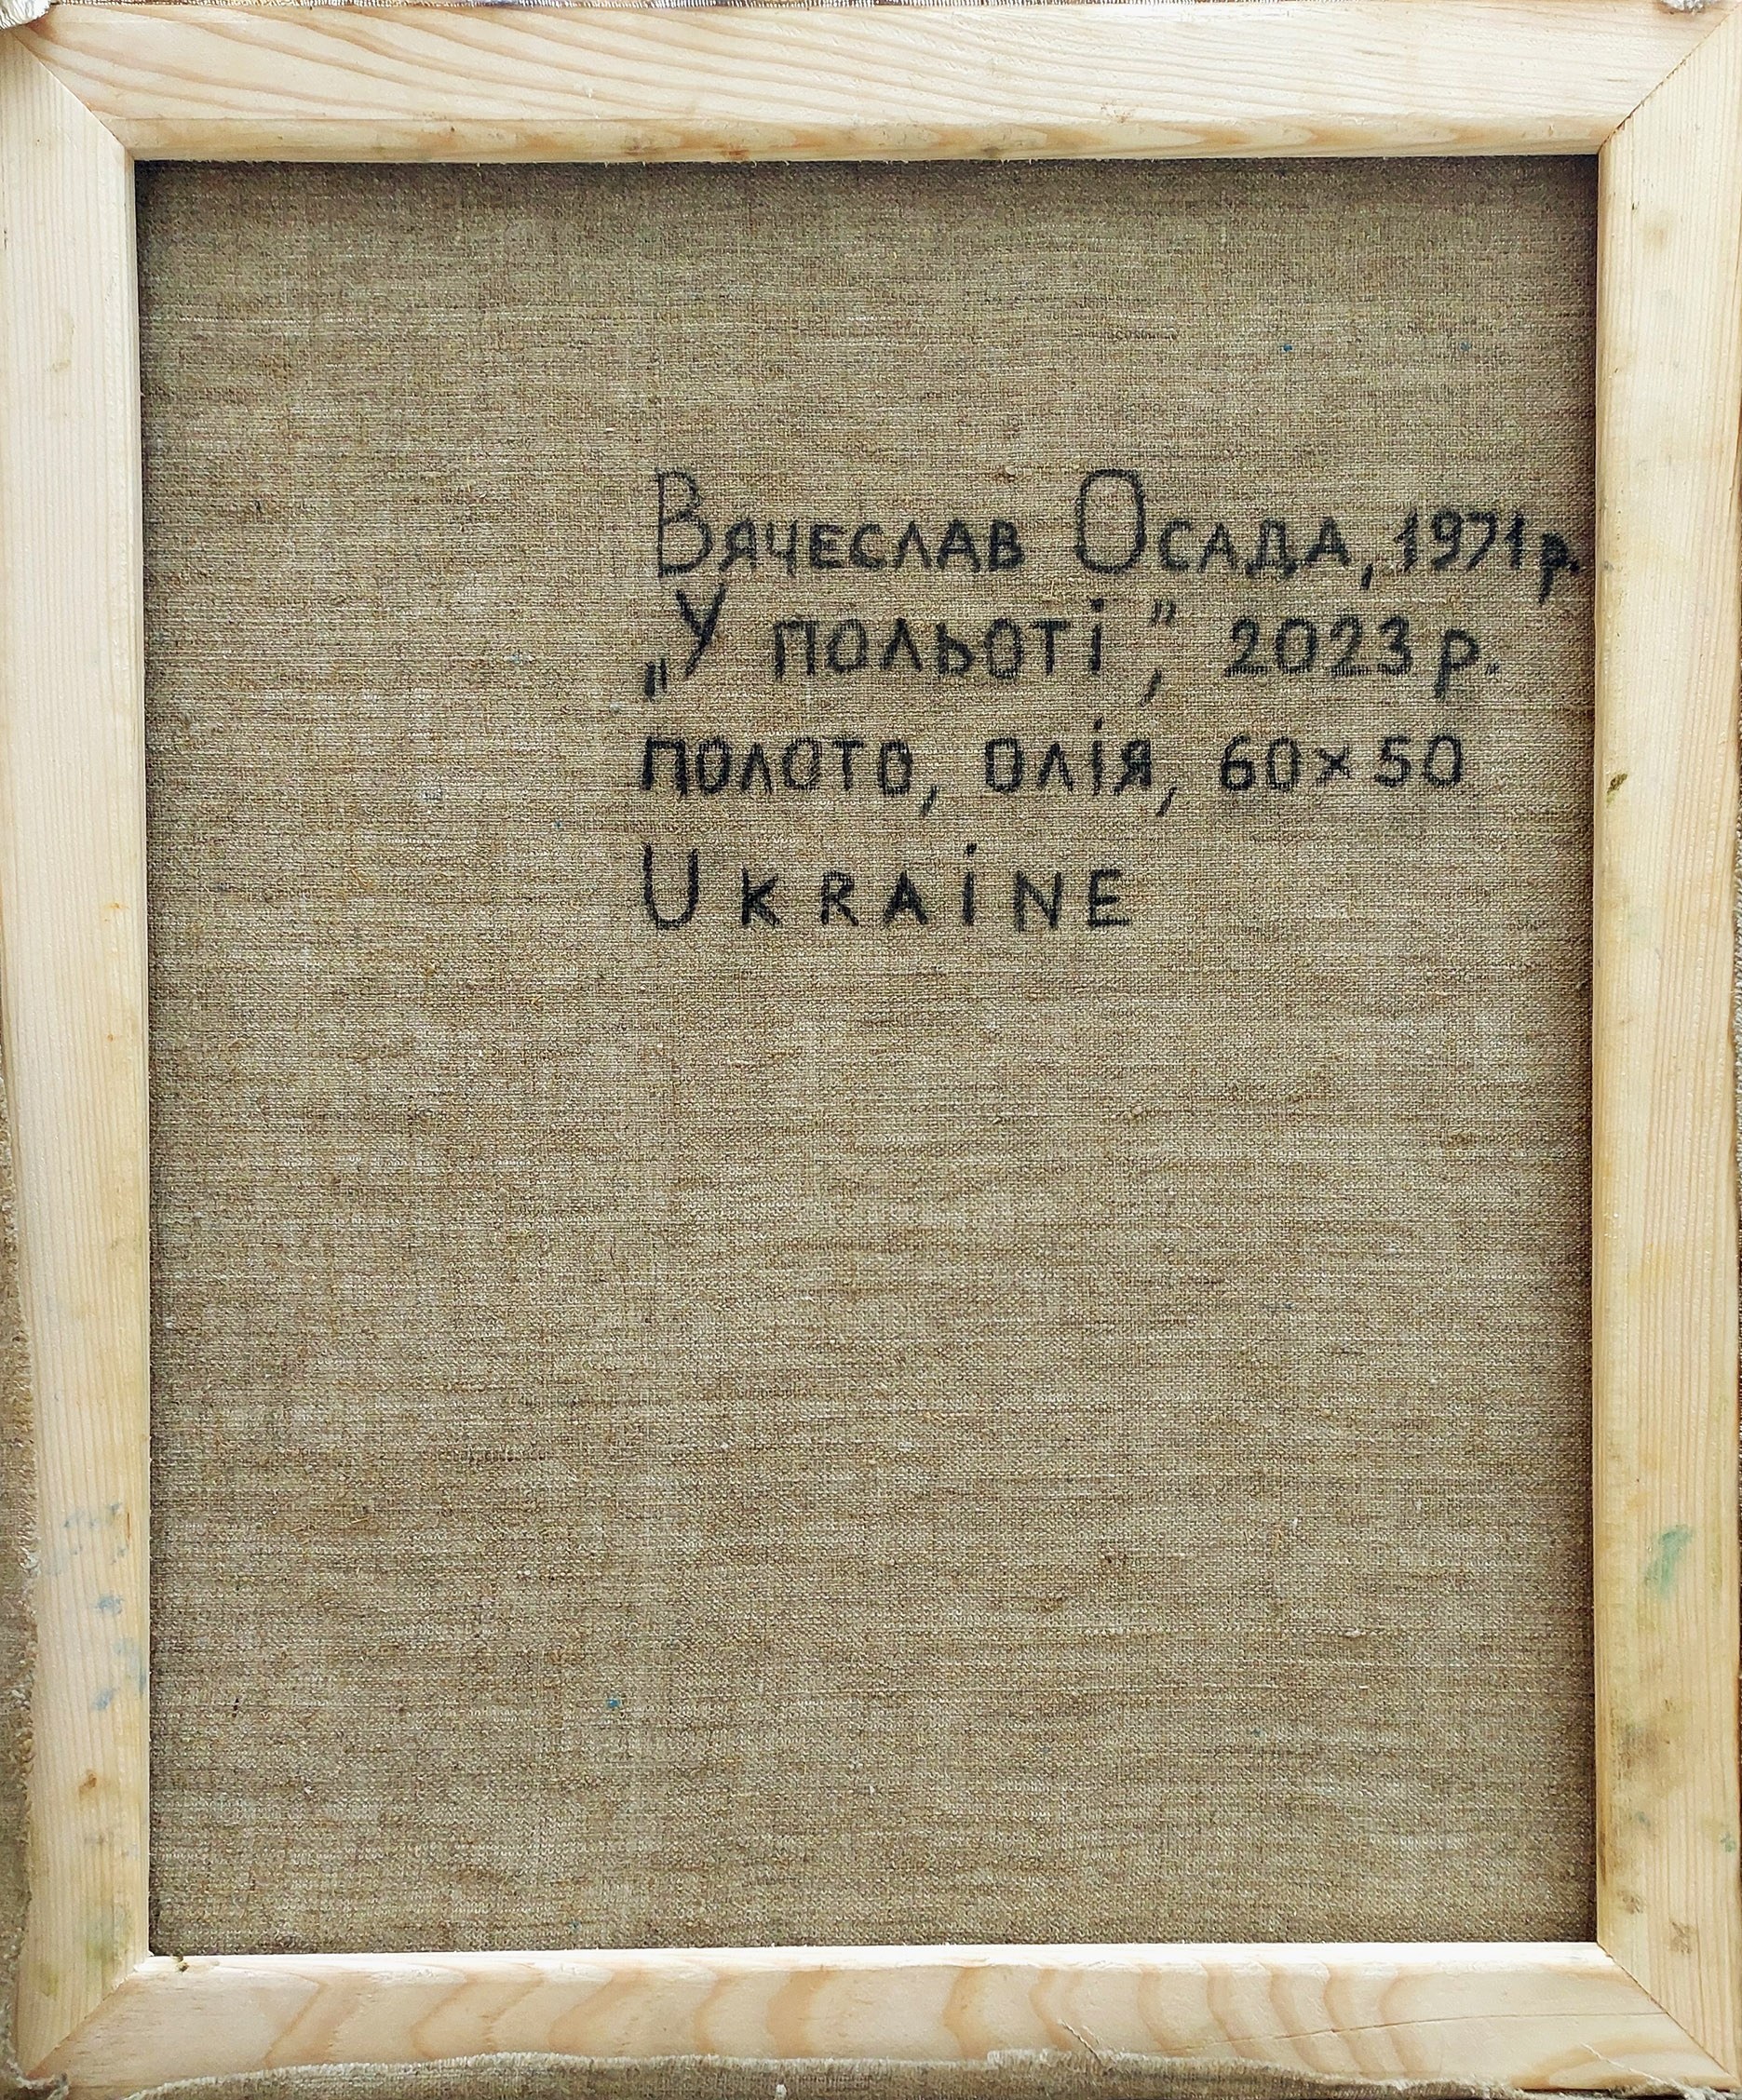 Вячеслав Осада, 1971 р.
„У польоті", 2023 р.
полото, олія, 60×50
UKRAiNE